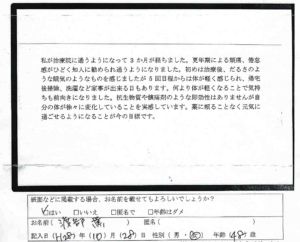 私が治療院に通うようになって３か月が経ちました。更年期による頭痛、倦怠
感がひどく知人に勧められ通うようになりました。初めは治療後、だるさのよ
うな眠気のようなものを感じましたが５回目程からは体が軽く感じられ、帰宅
後掃除、洗濯など家事が出来る日もあります。何より体が軽くなることで気持
ちも前向きになりました。抗生物質や鎮痛剤のような即効性はありませんが自
分の体が徐々に変化していることを実感しています。薬に頼ることなく元気に
過ごせるようになることが今の目標です。
紙面などに掲載する場合、お名前を載せてもよろしいでしょうか？
はい □いいえ □匿名で □年齢はダメ
お名前( ) 匿名( )
記入日(H28)年(10)月(28)日 性別(男・女) 年齢 48 歳